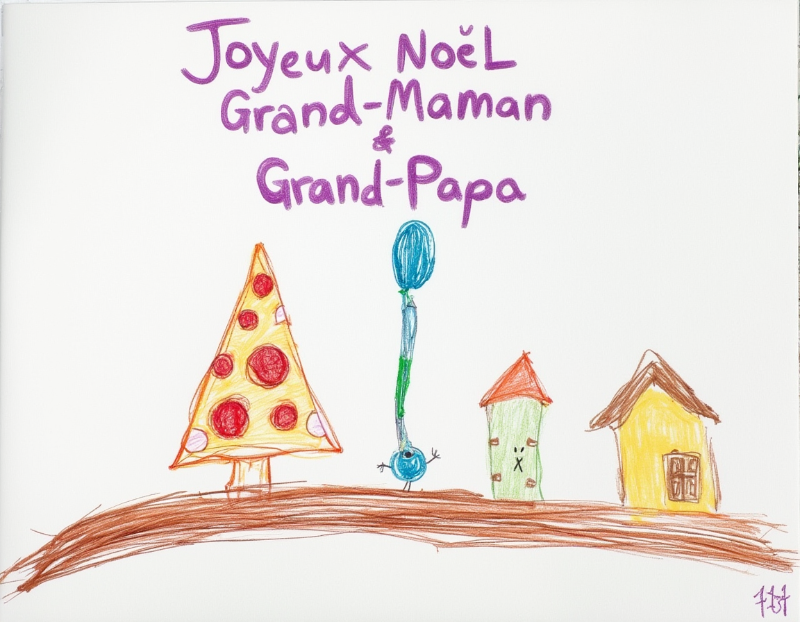 Joyeux Noël
Grand-Maman
&
Grand-Papa